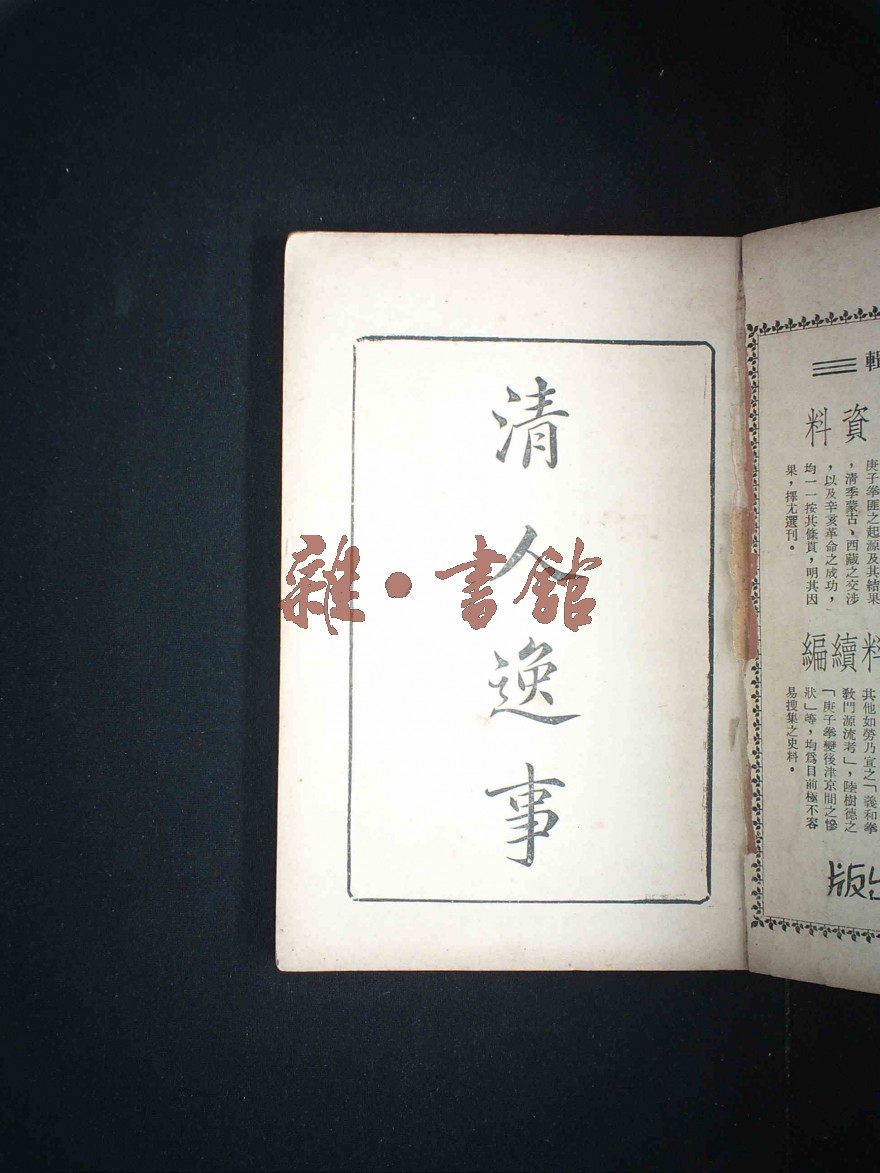 清人逸事
雜·書館
輯
資料
庚子拳匪之起源及其結果
，清季蒙古、西藏之交涉
，以及辛亥革命之成功，
均一一按其條貫，明其因
果，擇尤選刊。
料續編
其他如勞乃宣之「義和拳
教門源流考」，陸樹德之
「庚子拳變後津京間之慘
狀」等，均爲目前極不容
易搜集之史料。
出版